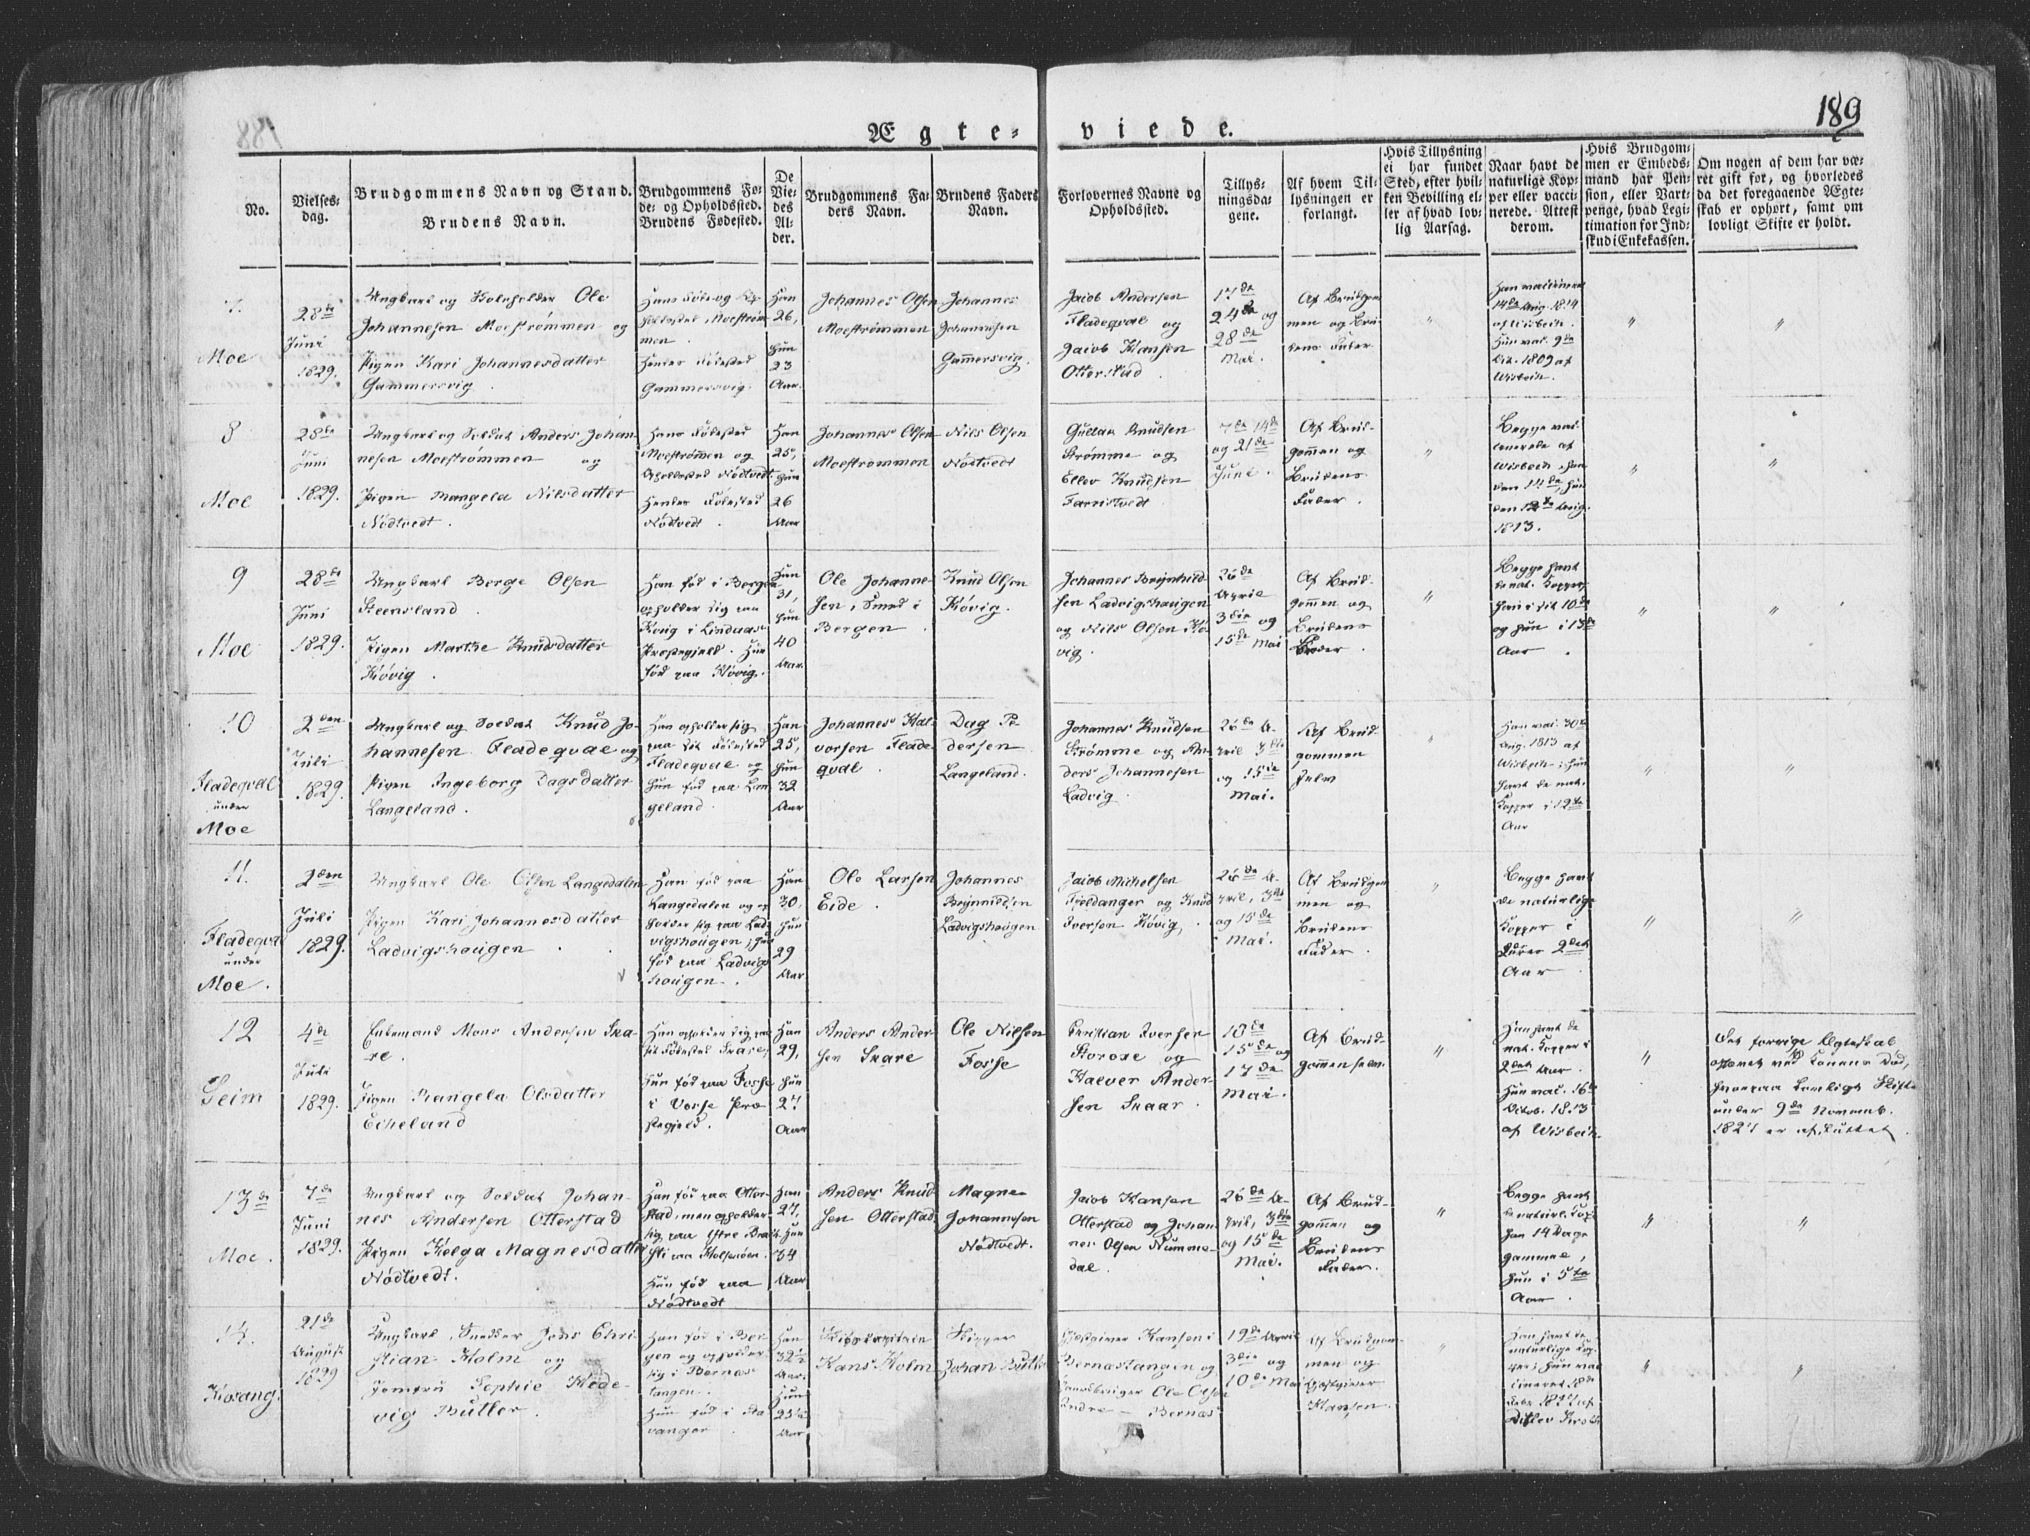 189
Ægte- viede.
No.
Vielses-
dag.
Brudgommens Navn og Stand.
Brudens Navn.
Brudgommens Fø-
de- og Opholdssted.
Brudens Fødested.
De
Vie-
des
Al-
der.
Brudgommens Fa-
ders Navn.
Brudens Faders
Navn.
Forlovernes Navne og
Opholdssted.
Tillys-
ningsda-
gene.
Af hvem Til-
lysningen er
forlangt.
Hvis Tillysning
ei har fundet
Sted, efter hvil-
ken Bevilling el-
ler af hvad lov-
lig Aarsag.
Naar havt de
naturlige Kop-
per eller vacci-
nerede. Attest
derom.
Hvis Brudgom-
men er Embeds-
mand har Pen-
sion, eller Vart-
penge, hvad Legi-
timation for Ind-
skud i Enkekassen.
Om nogen af dem har væ-
ret gift før, og hvorledes
da det foregaaende Ægte-
skab er ophørt, samt om
lovligt Skifte er holdt.
7.
Moe
28de
Juni
1829.
Ungkarl og Ole
Johannesen Moestrømmen og
Pigen Kari Johannesdatter
Gammersvig.
Hans Føde og Op-
holdssted, Moestrøm-
men.
Hendes Fødested
Gammersvig.
Han
26,
Hun
23
Aar.
Johannes Olsen
Moestrømmen
Johannes
Johannesen
Gammersvig.
Jacob Andersen
Fladeqval og
Jacob Hansen
Otterstad
17de
24de og
28de
Mai.
Af Brudgom-
men og Bru-
dens Fader
"
Han vaccineret
14de Aug. 1814
af Wisbech.
Hun vac. 9de
1809 af
Wisbech.
"
"
8
Moe
28de
Juni
1829.
Ungkarl og Soldat Anders Johan-
nesen Moestrømmen og
Pigen Mangela Nilsdatter
Nødtvedt.
Hans Fødested
Moestrømmen og
Opholdssted Nødtvedt
Hendes Fødested
Nødtvedt.
Han
25,
Hun
26
Aar
Johannes Olsen
Moestrømmen
Nils Olsen
Nødtvedt
Knudsen
Strømme og
Ellev Knudsen
Farestvedt.
7de 14de
og 21de
Juni.
Af Brud-
gommen og
Brudens
Fader.
"
Begge vac-
cinerede af
Wisbech, han
den 14de, hun
den 12te Aug.
1813.
"
"
9
Moe
28de
Juni
1829.
Ungkarl Berge Olsen
Steensland.
Pigen Marthe Knudsdatter
Køvig.
Han fød i Bergen
opholder sig paa
Kovig i Lindaas
Præstegjeld. Hun
fød paa Køvig.
Han
31,
Hun
40
Aar.
Ole Johanne-
sen, Smed i
Bergen.
Knud Olsen
Køvig.
Johannes Brynhild-
sen Ladvigshougen
og Nils Olsen Kø-
vig.
26de
April
3die og
15de Mai
Af Brud-
gommen og
Brudens
"
Begge havt
de nat. Kopper,
han i sit 10de
og hun i 13de
Aar.
"
"
10
Fladeqval
under
Moe
2den
Juli
1829.
Ungkarl og Soldat Knud Jo-
hannesen Fladeqval og
Pigen Ingeborg Dagsdatter
Langeland.
Han opholder sig
paa sit Fødested
Fladeqval og
Hun fød paa Lan-
geland.
Han
25,
Hun
32
Aar
Johannes Hal-
vorsen Flade-
qval.
Dag Pe-
dersen
Langeland.
Johannes Knudsen
Strømme og An-
ders Johannesen
Ladvig.
26de A-
pril 3die
og 15de
Mai.
Af Brud-
gommen
selv
"
Han vac. 30te
Aug. 1813 af
Wisbech, hun
havt de nat.
Kopper i 12te
Aar
"
"
11.
Fladeqval
under
Moe.
2den
Juli
1829.
Ungkarl Ole Olsen Langedalen
Pigen Kari Johannesdatter
Ladvigshougen.
Han fød paa
Langedalen og op-
holder sig paa Lad-
vigshougen, hun
fød paa Ladvigs-
hougen.
Han
30,
Hun
29
Aar
Ole Larsen
Eide.
Johannes
Brynnildsen
Ladvigshougen
Jacob Michelsen
Fieldanger og Knud
Iversen Kövig.
26de A-
pril, 3die
og 15de
Mai.
Af Brudgom-
men og
Brudens
Fader.
"
Begge havt
de naturlige
Kopper i
deres 2det
Aar.
"
"
12
Seim
4de
Juli
1829.
Enkemand Mons Andersen Ska-
re.
Pigen Mangela Olsdatter
Echeland
Han opholder sig paa
sit Fødested Skare,
Hun fød paa Fosse
i Vosse Præ-
stegjeld.
Han
29,
Hun
27
Aar
Anders Ander-
sen Skare
Ole Nilsen
Fosse
Christian Iversen
og
Halver Ander-
sen Skaar.
10de
15de og
17de
Mai.
Af Brud-
gommen selv.
"
Han havt de
nat. Kopper i
2det Aar.
Hun vac. 16de
Octob. 1813
af Wisbech.
"
Det forrige Ægteskab
ophævet ved Konens Død,
hvorpaa lovligt Skifte
under 9de Novemb.
1827 er afsluttet.
13de
Moe.
7de
Juni
1829.
Ungkarl og Soldat Johan-
nes Andersen Otterstad
Pigen Helga Magnesdatter
Nødtvedt.
Han fød paa Otter-
stad, men opholder
sig paa
Hun fød paa
Nødtvedt
Han
27,
Hun
34
Aar
Anders Knud-
sen Otterstad
Magne
Johannesen
Nødtvedt.
Jacob Hansen
Otterstad og Johan-
nes Olsen Numme-
dal.
26de A-
pril, 3die
og 15de
Mai.
Af Brud-
gommen og
Brudens
Fader.
"
Begge havt
de naturl. Kop.
han 14 Dage
gammel,
hun i 5te
Aar.
"
"
14.
Kosang.
21de
August
1829
Ungkarl, Snedker Jens Chri-
stian Holm og
Jomfru Sophie Hede-
vig Büller.
Han fød i Ber-
gen og opholder
sig i Bernæs-
tangen.
Hun fød i Sta-
vanger.
Han
32½
Aar.
Hun
23½
Aar
Hans Holm
Skipper
Johan Büller
Giestgiver Hansen i
Bernæstangen og
Ole Olsen
Indre-Bernæs
19de April
3die og
10de Mai
Af Brudgom-
men og
Giestgiver
Hansen.
"
Han havt de
naturlige Kop-
per; Hun vac-
cineret 18de
1827 af
"
"